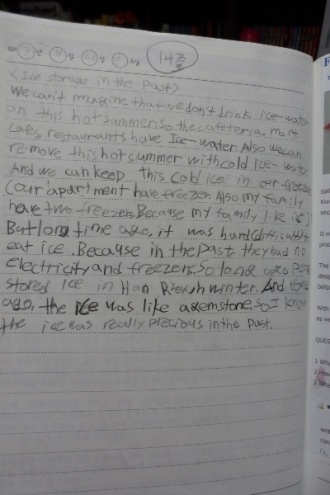 14주
<Ice storage in the past>
We can't imagine that we don't drink ice-water
on this hot summer. So the cafeteria, mart,
cafe, restaurants have Ice-water. Also we can
remove this hot summer with cold ice-water
And we can keep this cold ice in our freezer
(our apartment have freezer. Also my family
have two freezers. Because my family like ice)
But long time ago, it was hard(difficult) to
eat ice. Because in the past, they had no
electricity and freezers. So long ago people
stored ice in Han River in winter. And
ago, the ice was like a gemstone. So I know
the ice was really precious in the past.